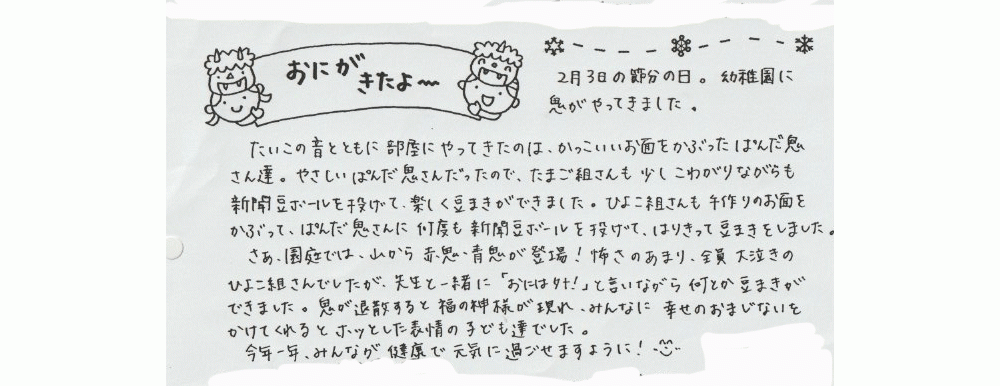 おにが
きたよ〜
2月3日の節分の日。幼稚園に
鬼がやってきました。
たいこの音とともに部屋にやってきたのは、かっこいいお面をかぶったぱんだ鬼
さん達。やさしいぱんだ鬼さんだったので、たまご組さんも少しこわがりながらも
新聞豆ボールを投げて、楽しく豆まきができました。ひよこ組さんも手作りのお面を
かぶって、ぱんだ鬼さんに何度も新聞豆ボールを投げて、はりきって豆まきをしました。
さあ、園庭では、山から赤鬼・青鬼が登場!怖さのあまり、全員大泣きの
ひよこ組さんでしたが、先生と一緒に「おには外!」と言いながら何とか豆まきが
できました。鬼が退散すると福の神様が現れ、みんなに幸せのおまじないを
かけてくれるとホッとした表情の子ども達でした。
今年一年、みんなが健康で元気に過ごせますように!